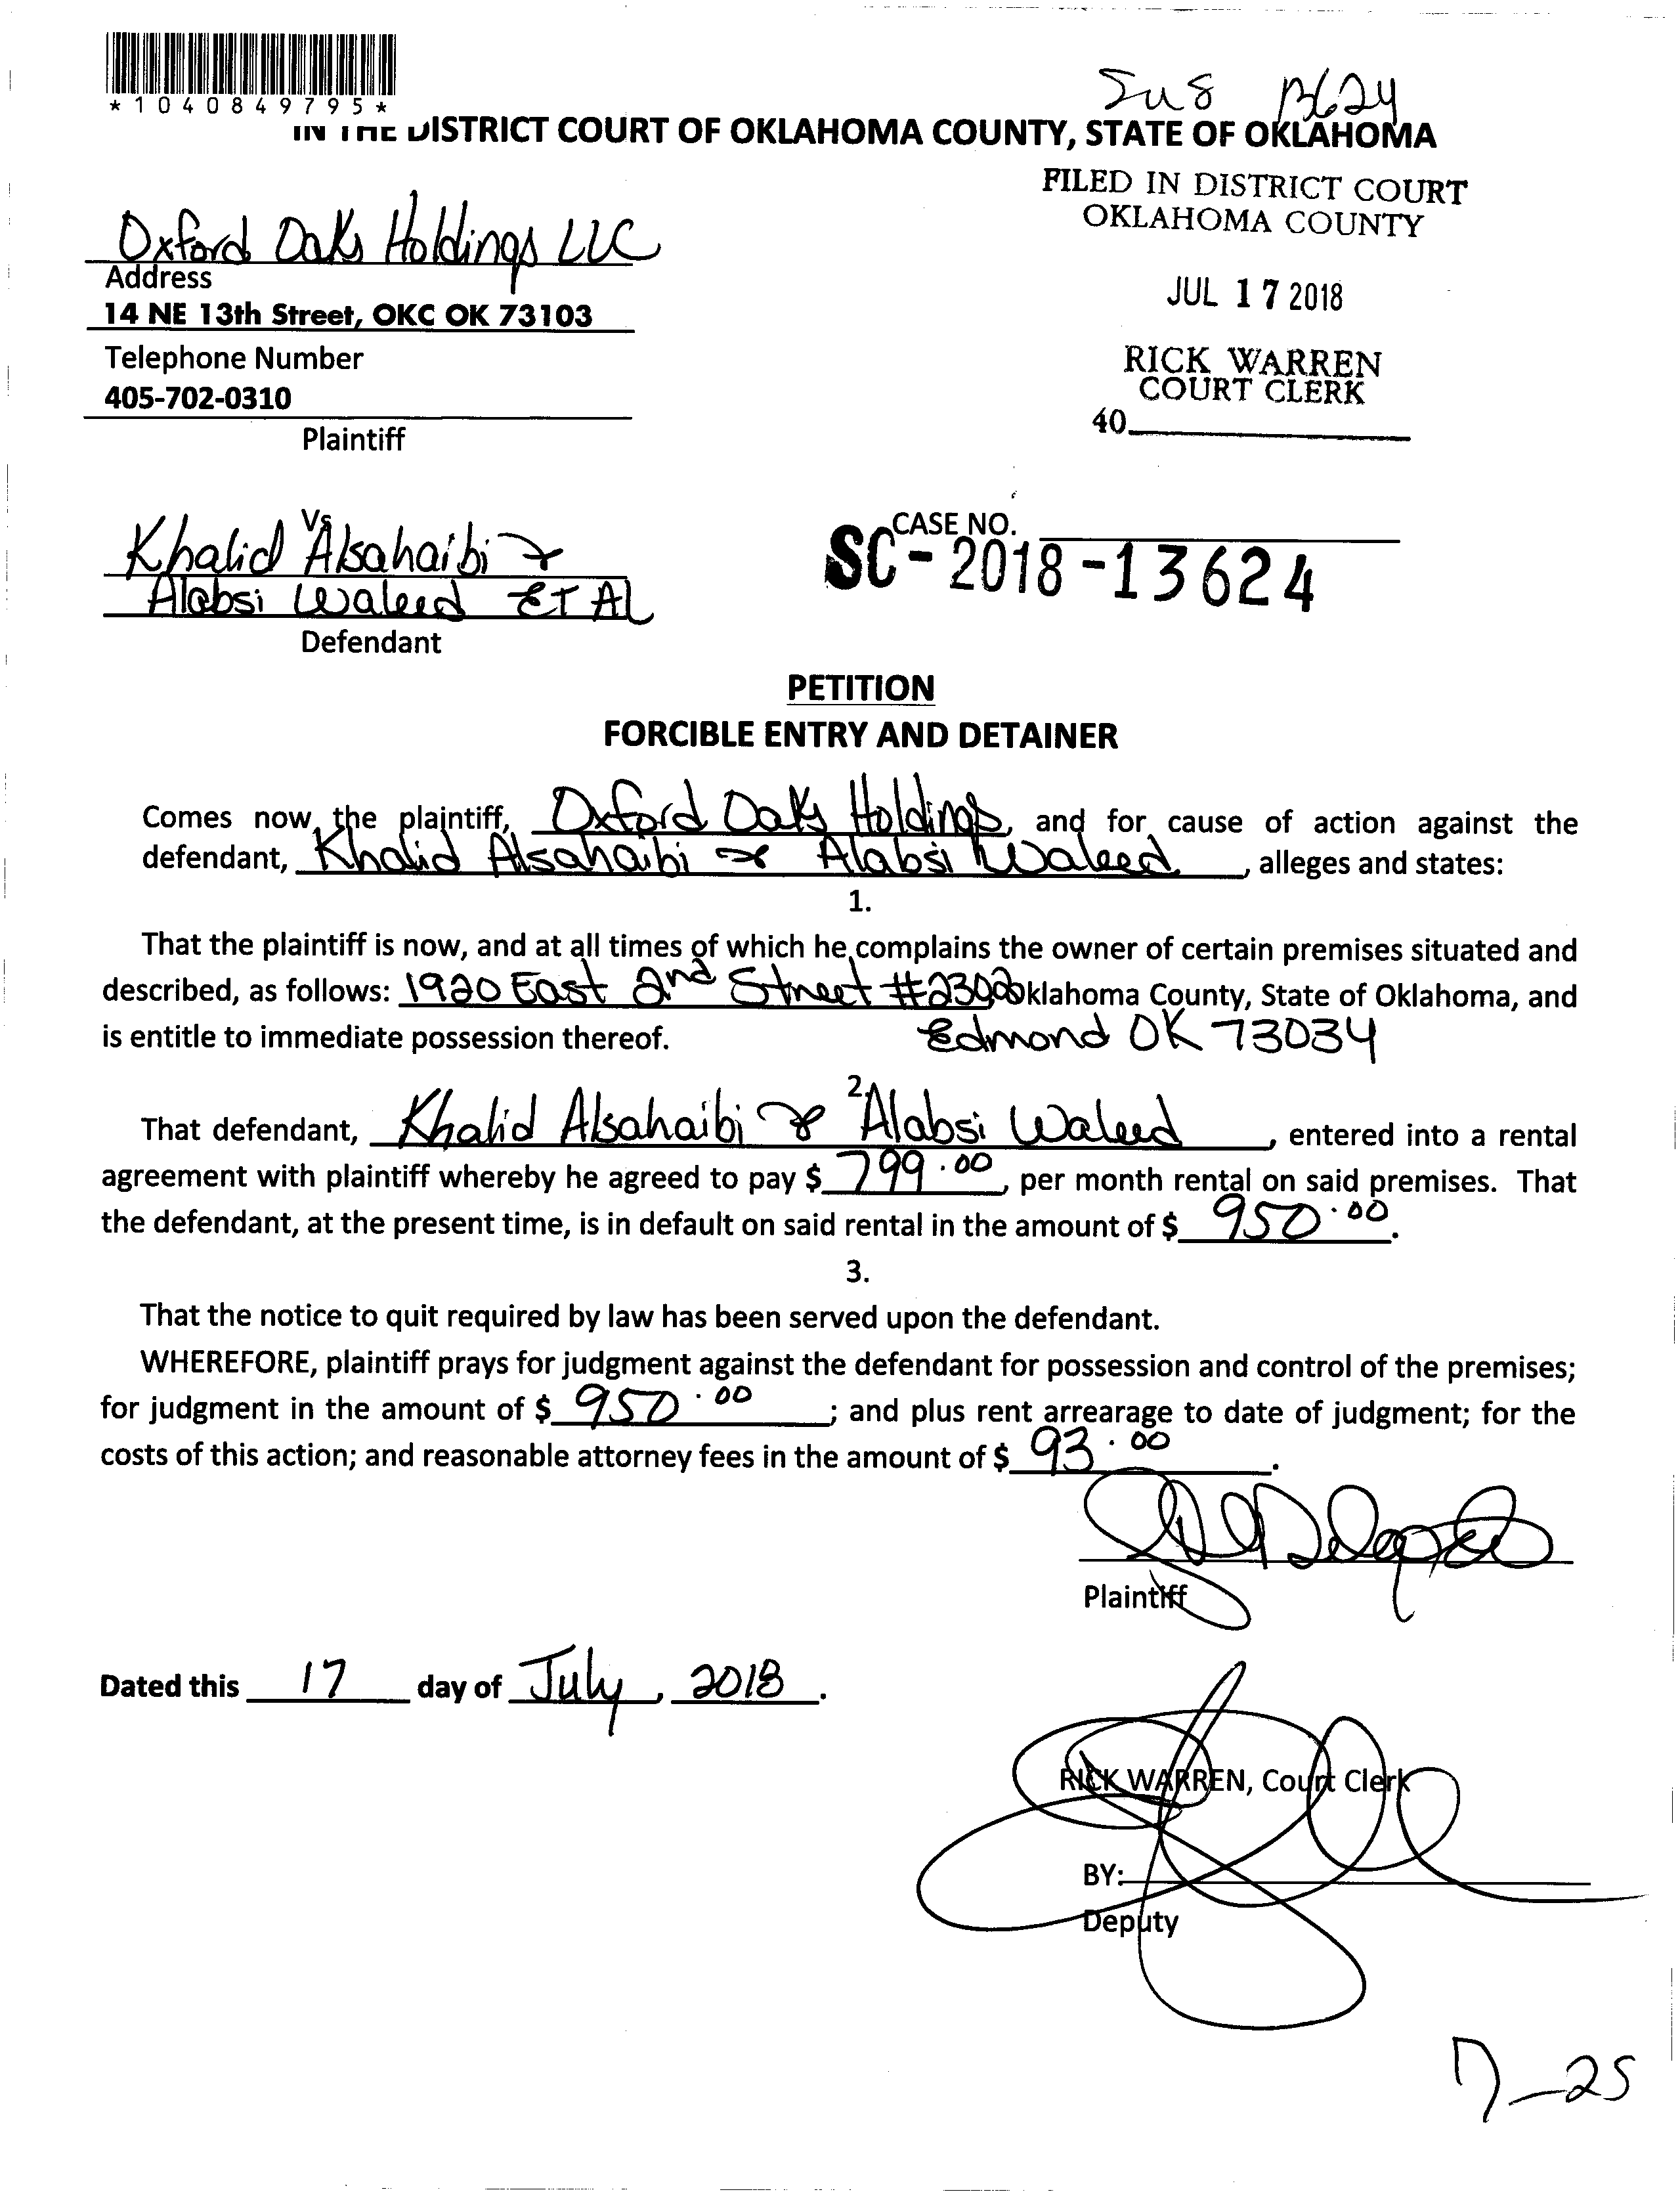 *1040849795*
IN THE DISTRICT COURT OF OKLAHOMA COUNTY, STATE OF OKLAHOMA
FILED IN DISTRICT COURT
OKLAHOMA COUNTY
JUL 17 2018
RICK WARREN
COURT CLERK
40
Oxford Oaks Holdings LLC
Address
14 NE 13th Street, OKC OK 73103
Telephone Number
405-702-0310
Plaintiff
Vs
Khalid Alsahaibi &
Alabsi Waleed ET AL
Defendant
CASE NO.
SC-2018-13624
PETITION
FORCIBLE ENTRY AND DETAINER
Comes now the plaintiff, Oxford Oaks Holdings, and for cause of action against the
defendant, Khalid Alsahaibi & Alabsi Waleed, alleges and states:
1.
That the plaintiff is now, and at all times of which he complains the owner of certain premises situated and
described, as follows: 1920 East 2nd Street Oklahoma County, State of Oklahoma, and
is entitle to immediate possession thereof. Edmond OK 73034
2.
That defendant, Khalid Alsahaibi & Alabsi Waleed, entered into a rental
agreement with plaintiff whereby he agreed to pay $ 799.00, per month rental on said premises. That
the defendant, at the present time, is in default on said rental in the amount of $ 950.00.
3.
That the notice to quit required by law has been served upon the defendant.
WHEREFORE, plaintiff prays for judgment against the defendant for possession and control of the premises;
for judgment in the amount of $ 950.00; and plus rent arrearage to date of judgment; for the
costs of this action; and reasonable attorney fees in the amount of $ 93.00.
Plaintiff
Dated this 17 day of July, 2018.
RICK WARREN, Court Clerk
BY:
Deputy
7-25